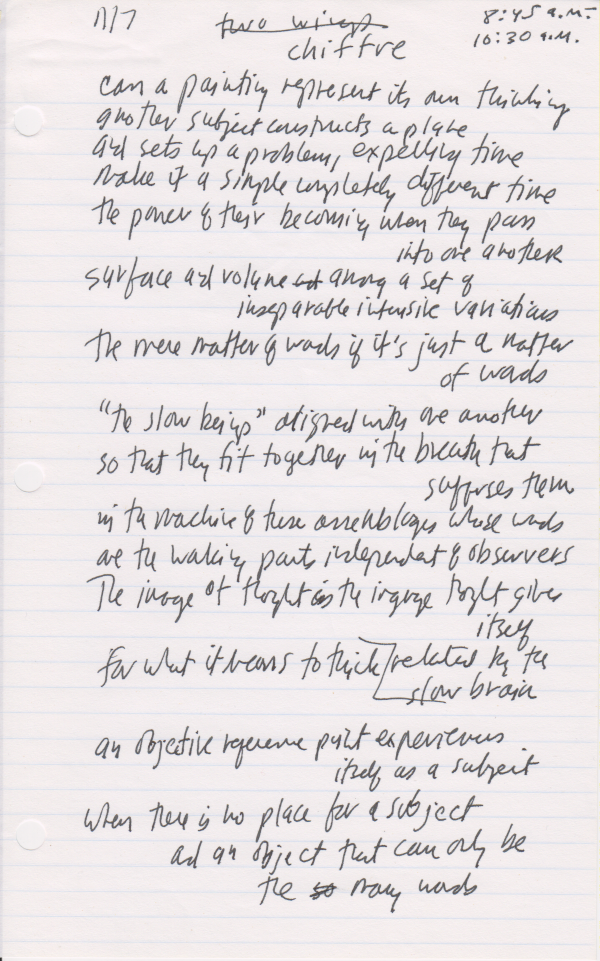 11/7
two wings
8:45 a.m.-
10:30 a.m.
chiffre
can a painting represent its own thinking
another subject constructs a plane
and sets up a problem, expelling time
make it a simple completely different time
the power of their becoming when they pass
into one another
surface and volume among a set of
inseparable intensive variations
the mere matter of words if it's just a matter
of words
"the slow beings" aligned with one another
so that they fit together in the breath that
suffuses them
in the machine of these assemblages whose words
are the working parts independent of observers
The image of thought is the image thought gives
itself
for what it means to think related by the
slow brain
an objective reference point experiences
itself as a subject
when there is no place for a subject
and an object that can only be
the so many words